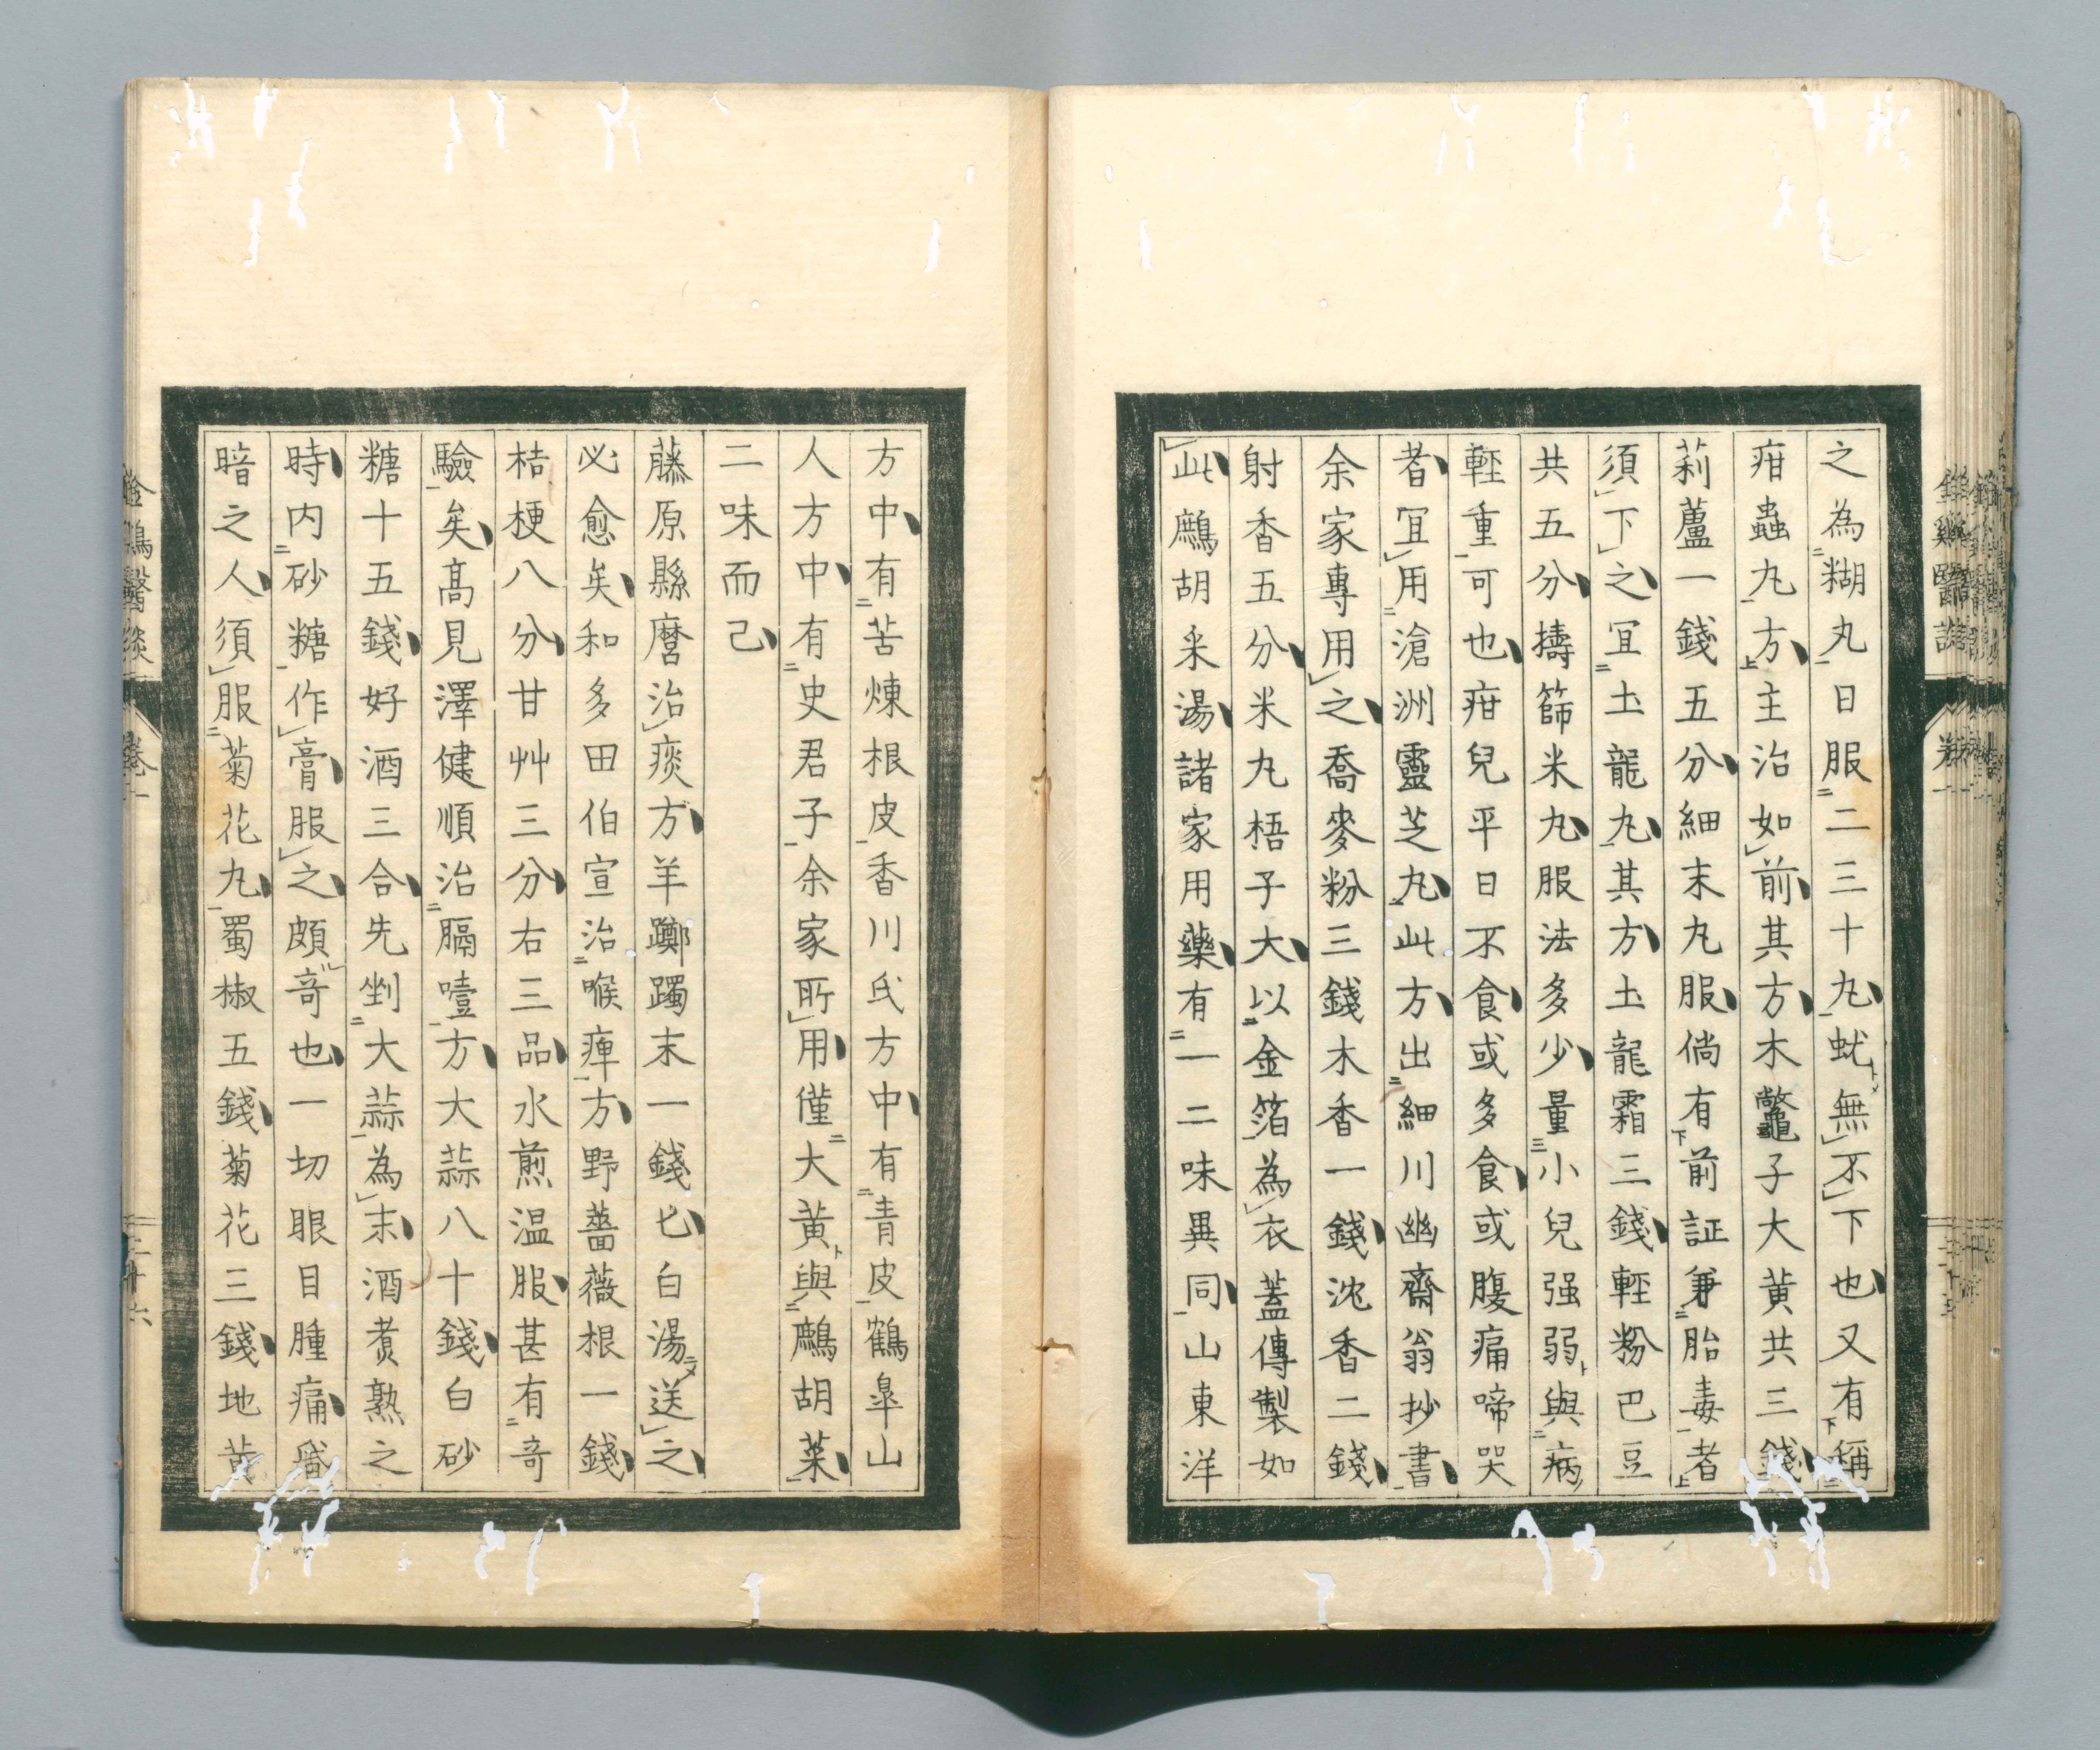 之為糊丸日服二三十丸蚘無不下也又有稱
疳蟲丸方主治如前其方木鼈子大黄共三錢
莉蘆一錢五分細末丸服倘有前証兼胎毒者
須下之冝土龍丸其方土龍霜三錢輕粉巴豆
共五分擣篩米丸服法多少量小兒强弱與病
輕重可也疳兒平日不食或多食或腹痛啼哭
者冝用滄洲靈芝丸此方出細川幽齋翁抄書
余家專用之喬麥粉三錢木香一錢沈香二錢
射香五分米丸梧子大以金箔為衣蓋傳製如
此鷓胡米湯諸家用藥有一二味異同山東洋
方中有苦煉根皮香川氏方中有青皮鶴皐山
人方中有史君子余家所用僅大黄與鷓胡菜
二味而己
藤原縣麿治痰方羊躑躅末一錢匕白湯送之
必愈矣和多田伯宣治喉痺方野薔薇根一錢
桔梗八分甘艸三分右三品水煎温服甚有奇
驗矣髙見澤健順治膈噎方大蒜八十錢白砂
糖十五錢好酒三合先剉大蒜為末酒煮熟之
時内砂糖作膏服之頗奇也一切眼目腫痛
暗之人須服菊花丸蜀椒五錢菊花三錢地黄
金鷄醫談
卷一
二十六